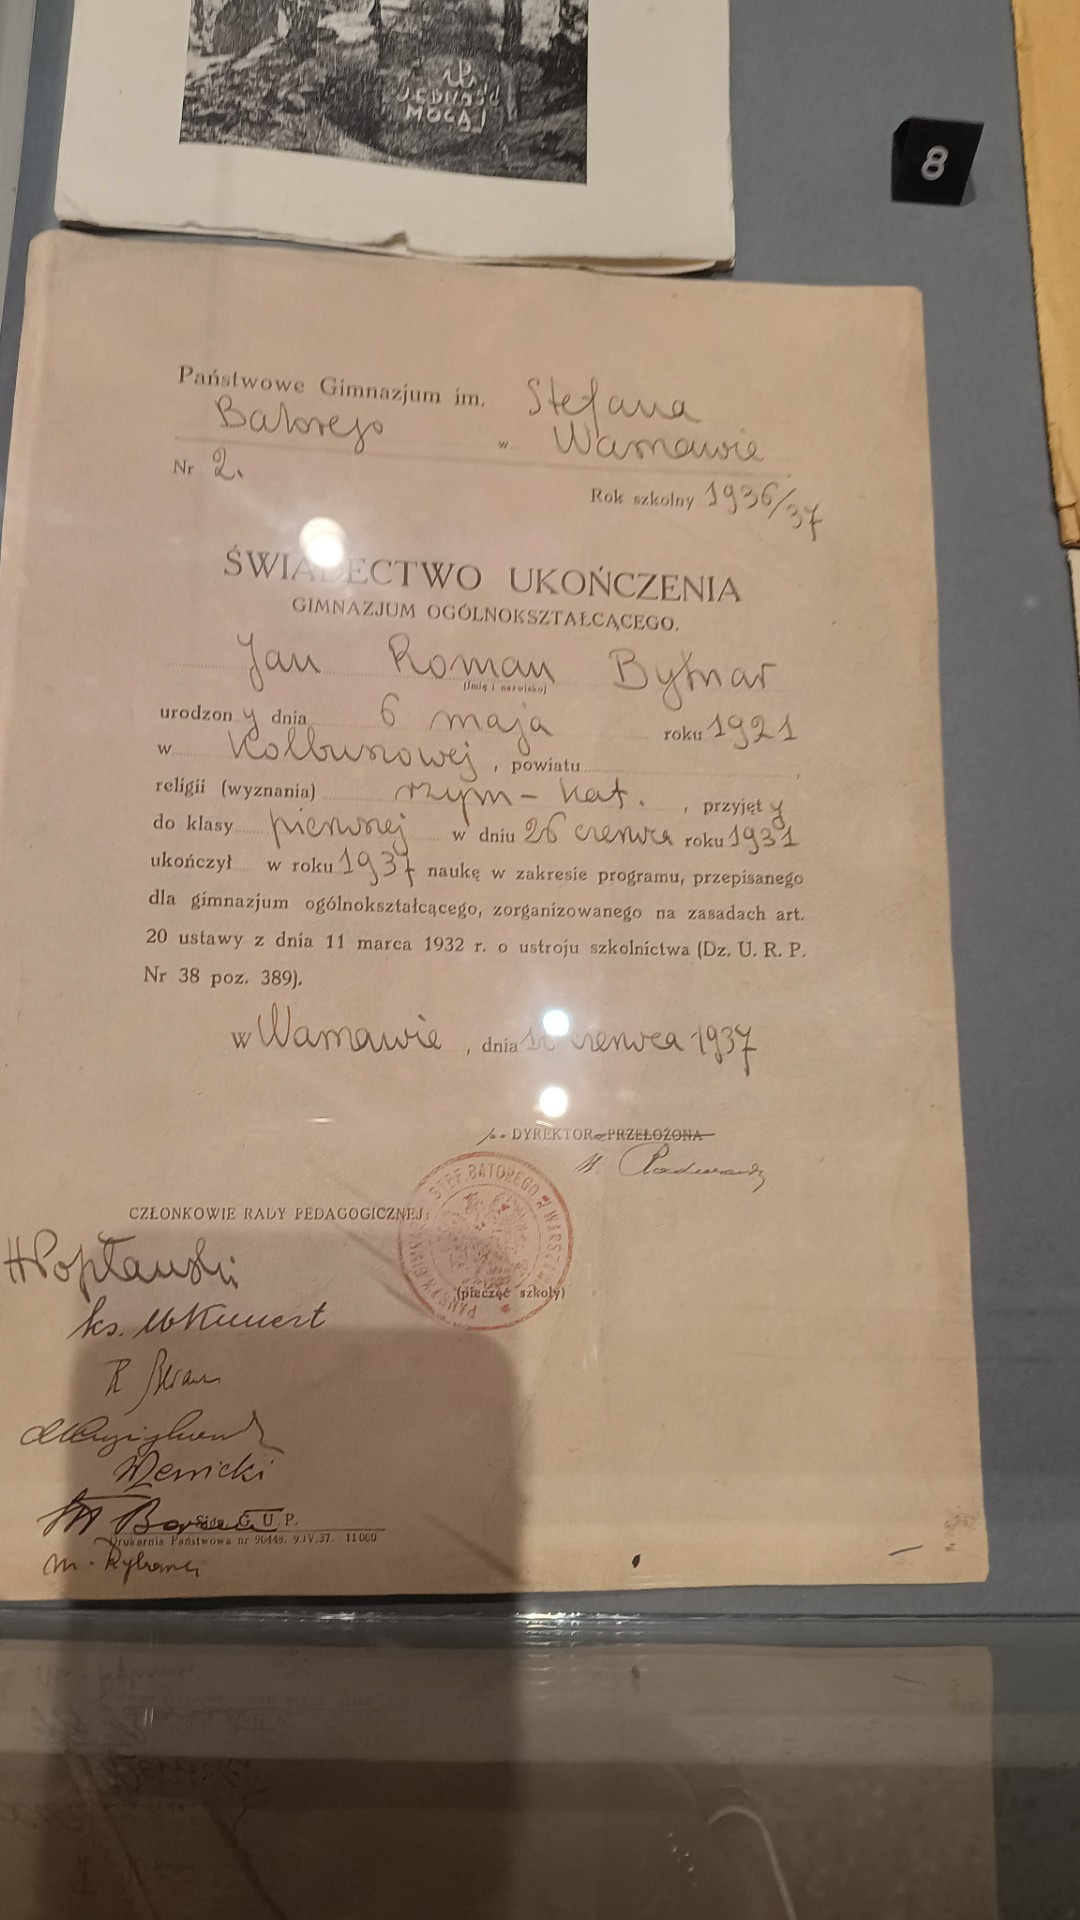 JEDNOŚĆ
MOCĄ!
8
Państwowe Gimnazjum im. Stefana
Batorego w Warszawie
Nr 2.
Rok szkolny 1936/37
ŚWIADECTWO UKOŃCZENIA
GIMNAZJUM OGÓLNOKSZTAŁCĄCEGO.
Jan Roman Bytnar
(Imię i nazwisko)
urodzony dnia 6 maja roku 1921
w Kolbuszowej, powiatu
religii (wyznania) rzym-kat., przyjęty
do klasy pierwszej w dniu 26 czerwca roku 1931
ukończył w roku 1937 naukę w zakresie programu, przepisanego
dla gimnazjum ogólnokształcącego, zorganizowanego na zasadach art.
20 ustawy z dnia 11 marca 1932 r. o ustroju szkolnictwa (Dz. U. R. P.
Nr 38 poz. 389).
w Warszawie, dnia czerwca 1937
DYREKTOR-PRZEŁOŻONA
STEF. BATOREGO W WARSZAWIE
CZŁONKOWIE RADY PEDAGOGICZNEJ:
(pieczęć szkoły)
HPopławski
ks. Kunert
U. P.
Drukarnia Państwowa nr 90448. 9.IV.37. 11000